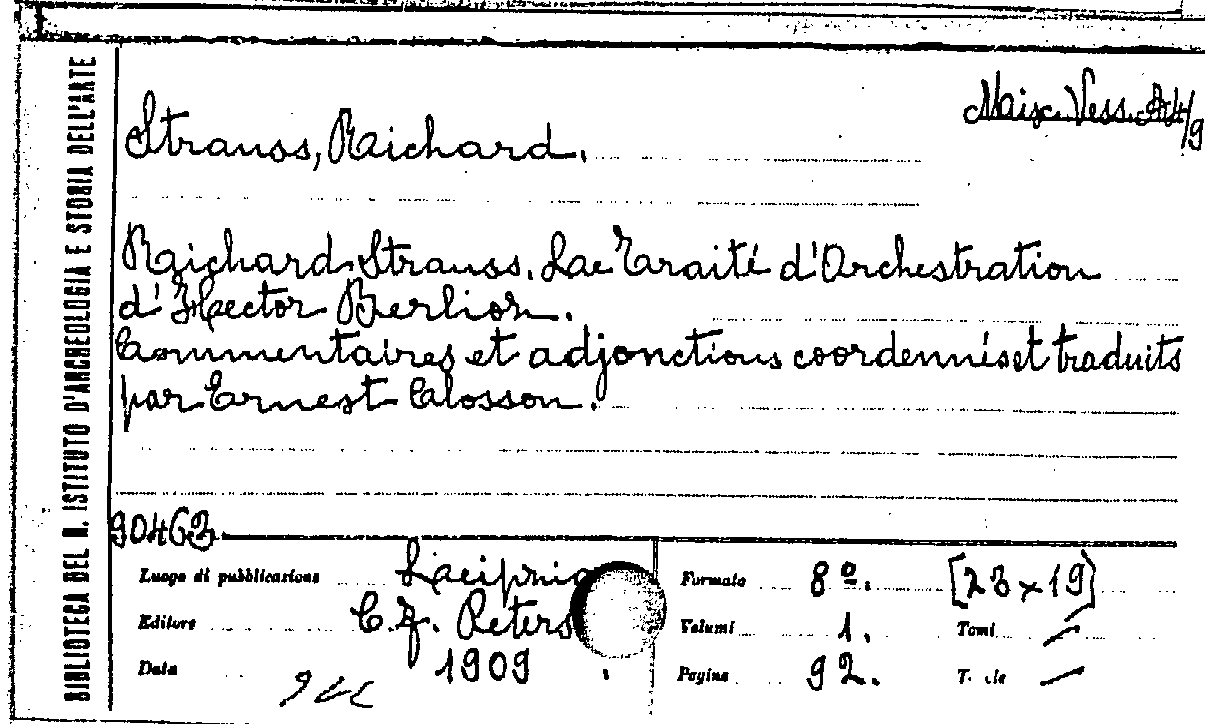 BIBLIOTECA DEL R. ISTITUTO D'ARCHEOLOGIA E STORIA DELL'ARTE
Misc. Vess. A4/9
Strauss, Richard.
Richard Strauss. Le Traité d'Orchestration
d'Hector Berlioz.
Commentaires et adjonctions coordennés et traduits
par Ernest Closson.
90463
Luogo di pubblicazione Leipzig
Formato 8º. [23 x 19]
Editore C. F. Peters
Volumi 1. Tomi —
Data 1909
Pagine 92. —